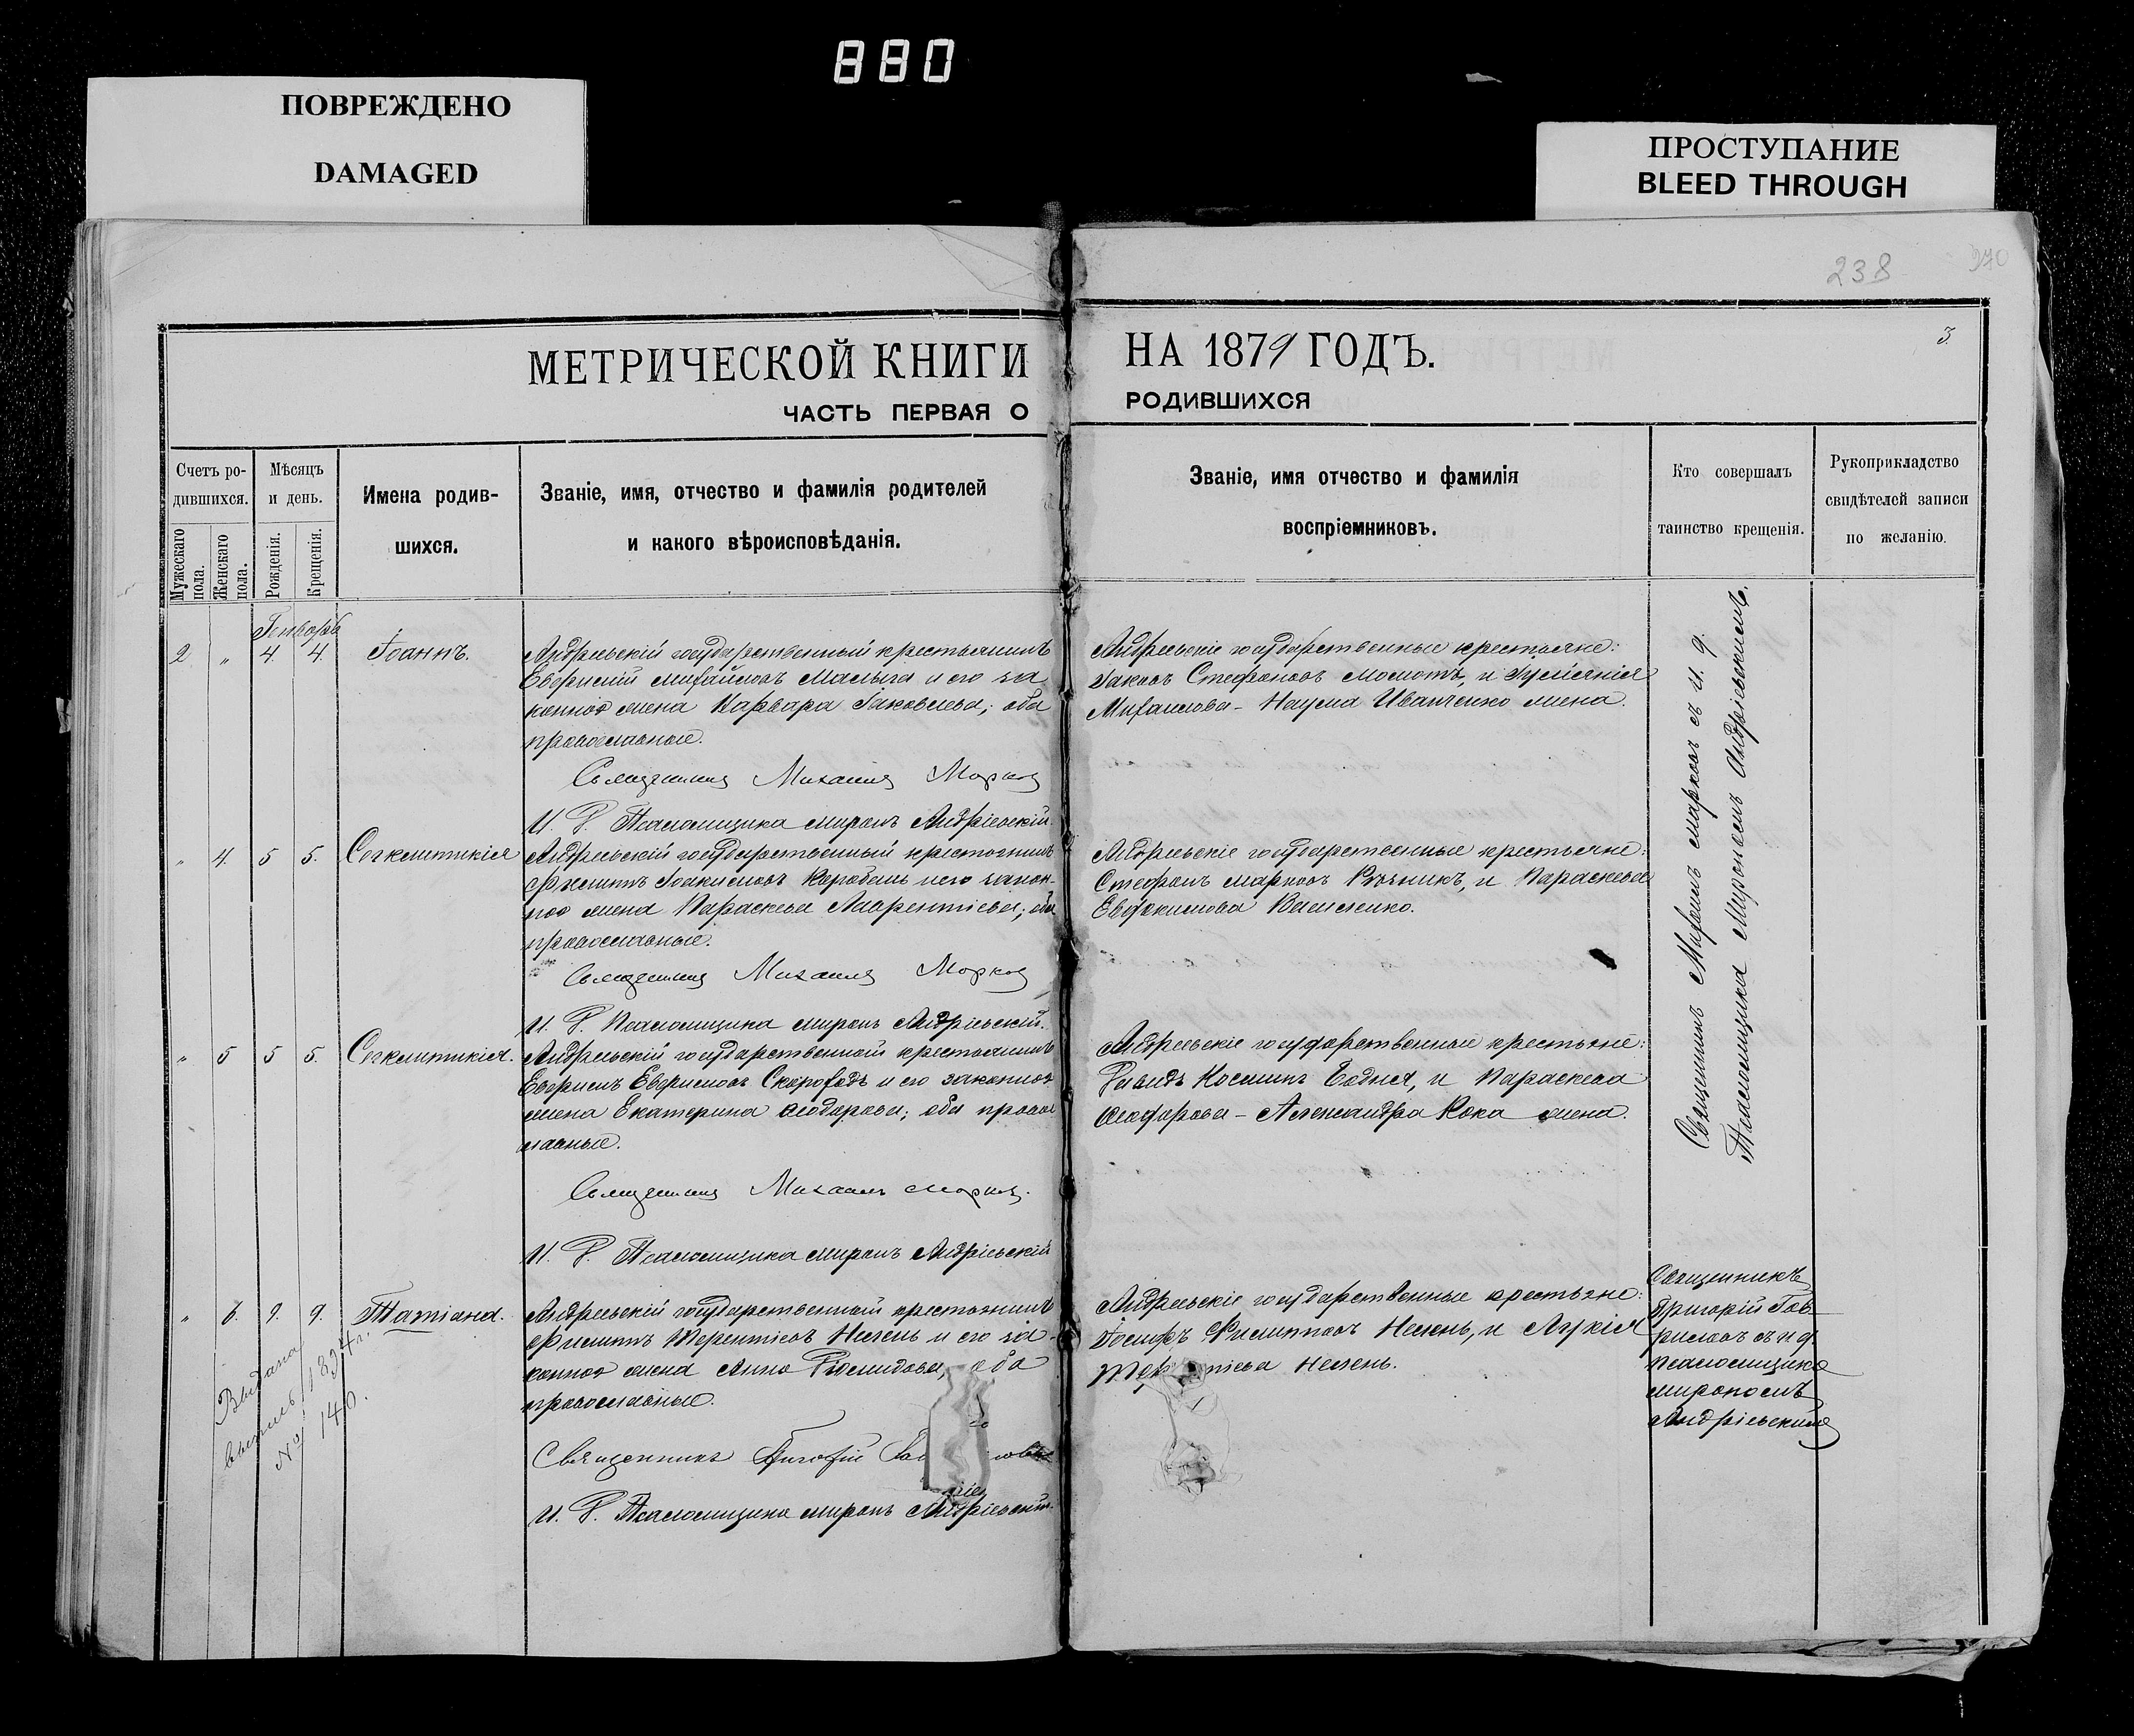 880
ПОВРЕЖДЕНО
DAMAGED
ПРОСТУПАНИЕ
BLEED THROUGH
238
270
3.
МЕТРИЧЕСКОЙ КНИГИ
НА 1879 ГОДЪ.
ЧАСТЬ ПЕРВАЯ О
РОДИВШИХСЯ
Счетъ ро-
дившихся.
Мужескаго
пола.
Женскаго
пола.
Мѣсяцъ
и день.
Рожденія.
Крещенія.
Имена родив-
шихся.
Званіе, имя, отчество и фамилія родителей
и какого вѣроисповѣданія.
Званіе, имя отчество и фамилія
воспріемниковъ.
Кто совершалъ
таинство крещенія.
Рукоприкладство
свидѣтелей записи
по желанію.
Генворь
2 " 4. 4. Іоаннъ.
Андреевскій государственный крестьянинъ
Евфимій Михайловъ Малыга и его за
конная жена Варвара Іаковлева; оба
православные.
Священникъ Михаилъ Марков
И. Д. Псаломщика Миронъ Андріевскій.
Андреевскіе государственные крестьяне:
Іаковъ Стефановъ Момотъ, и
Михаилова - Наума Иванченко жена.
" 4. 5 5. Сегклитикія
Андреевскій государственный крестьянинъ
Филиппъ Іоакимовъ Коробань и его закон-
ная жена Параскева Лаврентіева; оба
православные.
Священникъ Михаилъ Марков
И. Д. Псаломщика Миронъ Андріевскій.
Андреевскіе государственные крестьяне:
Стефанъ Марковъ и Параскева
Евдокимова Василенко.
" 5 5 5. Сегклитикія.
Андреевскій государственный крестьянинъ
Ефремъ Ефремовъ Скороходъ и его законная
жена Екатерина Ѳеодорова; оба правос
лавные.
Священникъ Михаилъ Марков.
И. Д. Псаломщика Миронъ Андріевскій
Андреевскіе государственные крестьяне:
Давидъ Косминъ Бодня, и Параскева
Ѳеодорова - Александра Кока жена.
Священникъ Михаилъ Марковъ съ И. Д.
Псаломщика Мирономъ Андріевскимъ.
" 6. 9. 9. Татіана.
Андреевскій государственный крестьянинъ
Филиппъ Терентіевъ Нелень и его за-
конная жена Анна Діомидова, оба
православные.
Священникъ Григорій
И. Д. Псаломщика Миронъ Андріевскій.
Андреевскіе государственные крестьяне:
Іосифъ Филипповъ Нелень, и Лукія
Нелень.
Священникъ
Григорій Гав-
риловъ съ И Д
псаломщика
Мирономъ
Андріевскимъ
Выдана
1894 г.
№ 140.